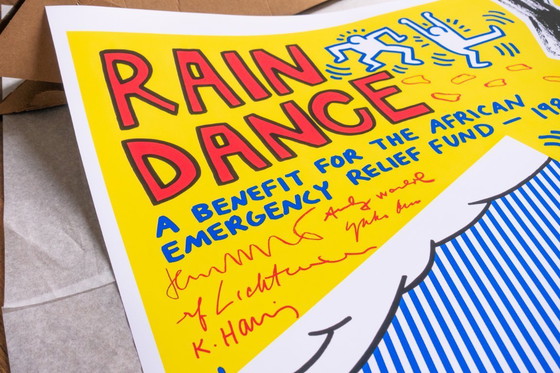 RAIN
DANCE
A BENEFIT FOR THE AFRICAN
EMERGENCY RELIEF FUND — 19
Andy Warhol
rf Lichtenstein
K. Haring